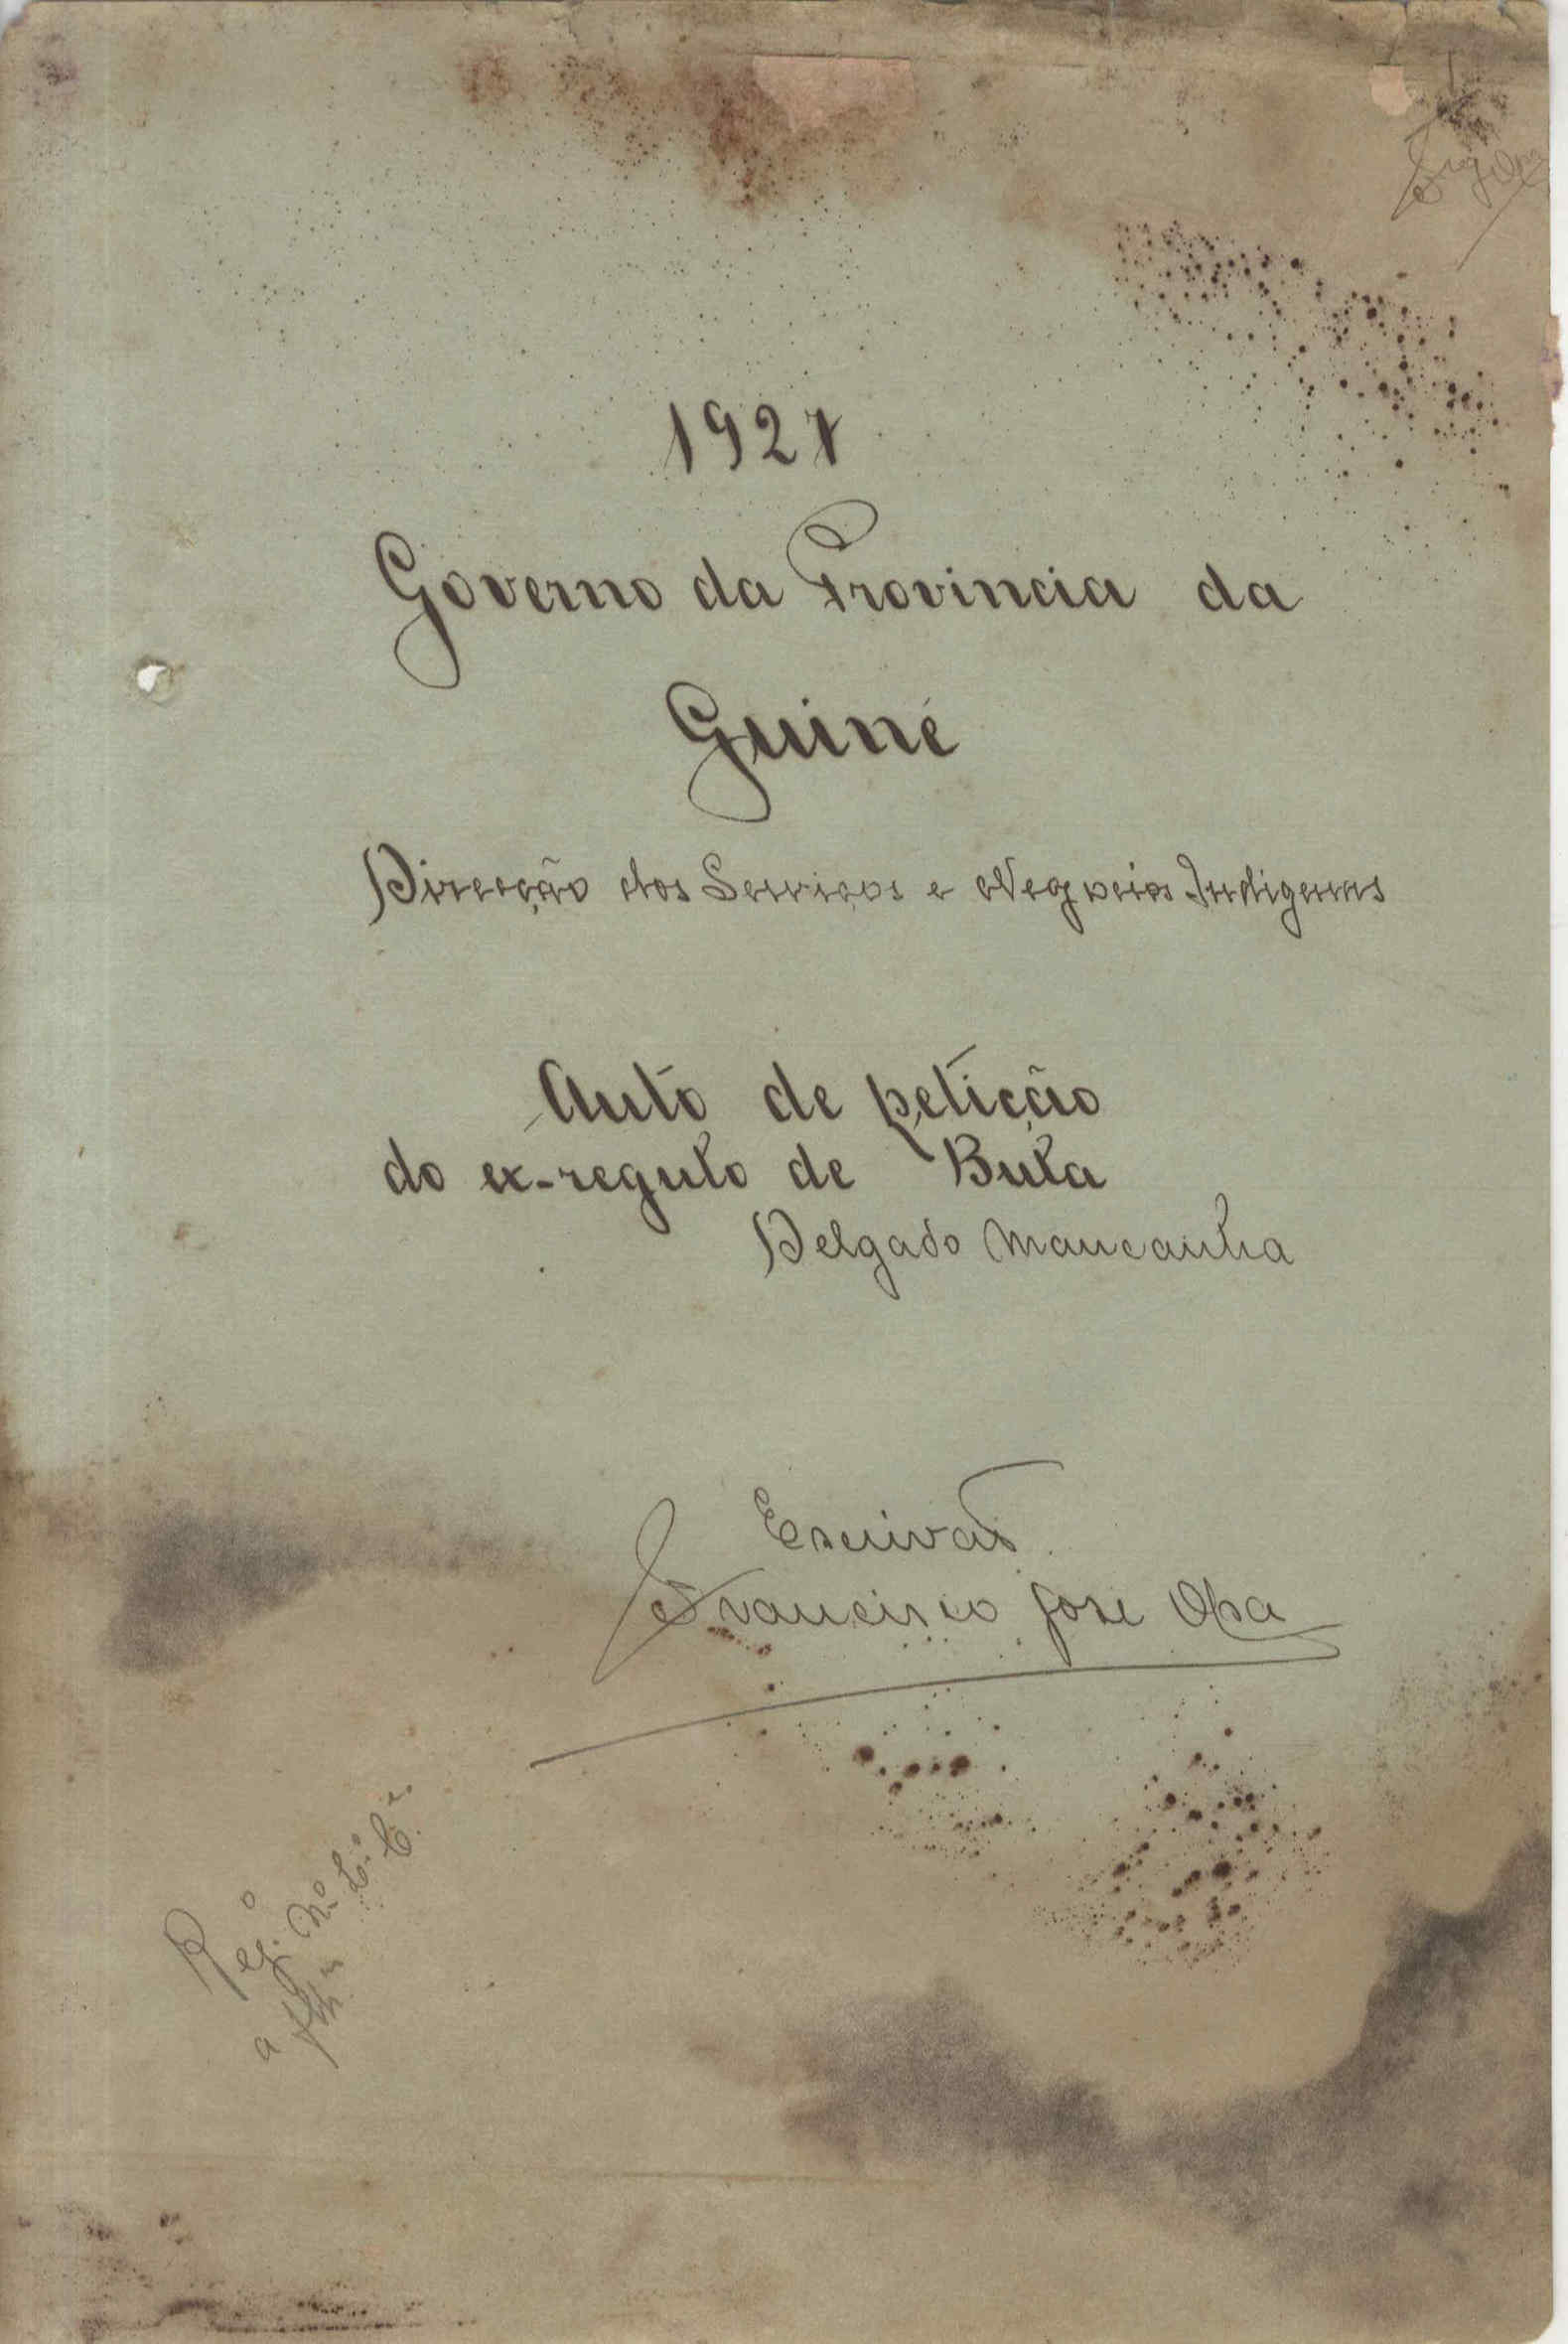 1927
Governo da Provincia da
Guiné
Direcção dos Serviços e Negocios Indigenas
Auto de petição
do ex-regulo de Bula
Delgado Mancanha
Escrivão
Francisco José Oha
Reg.º N.º L.º C.e